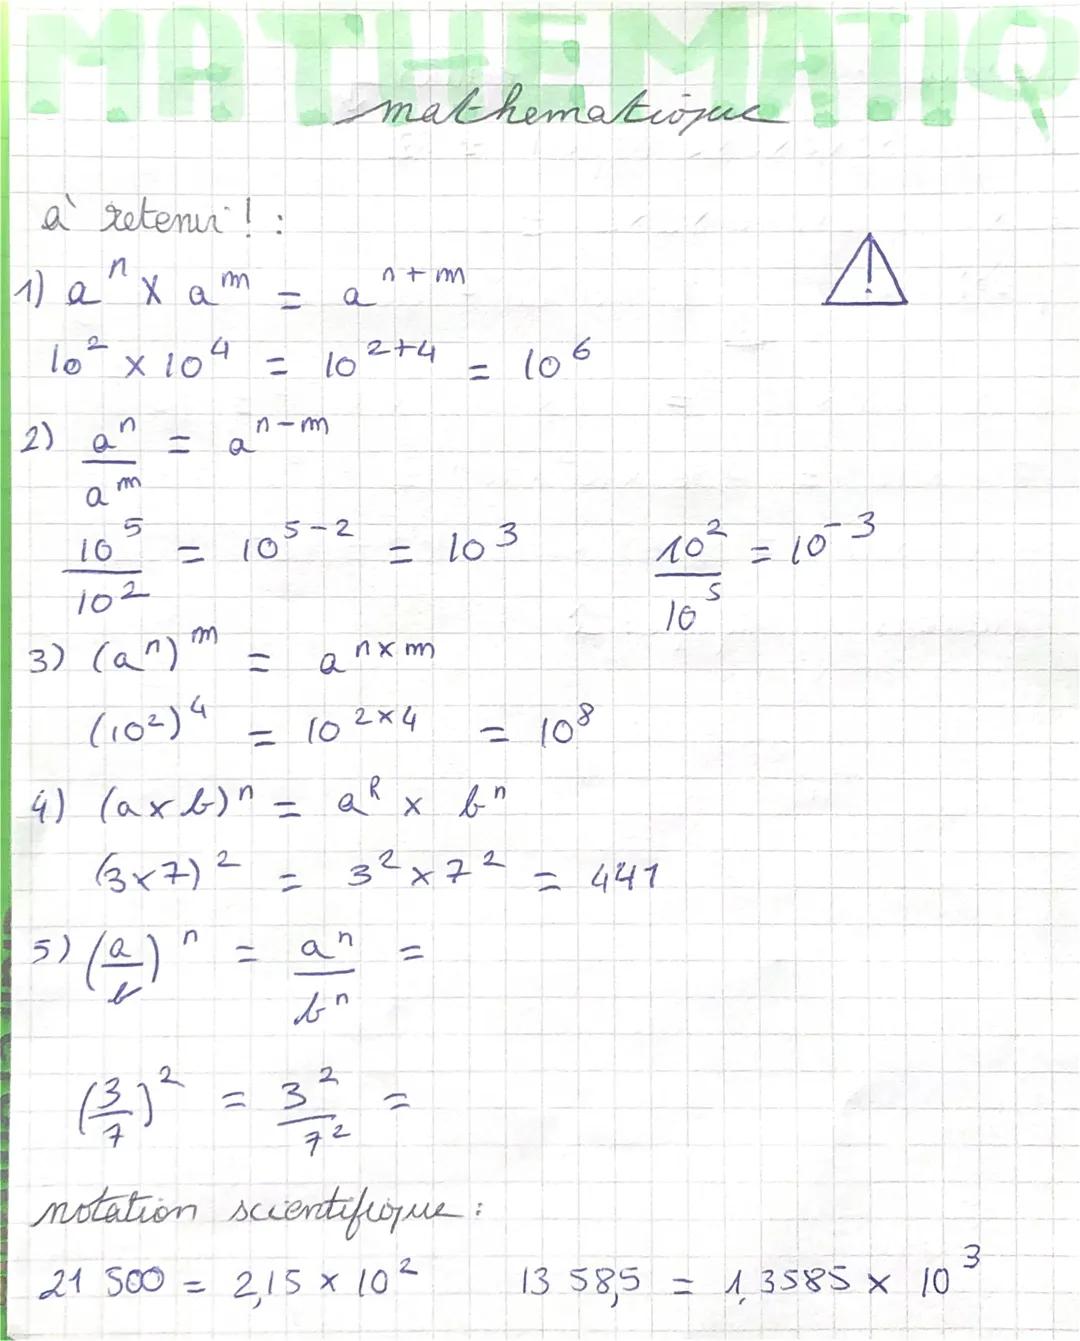 MATHEMATIQ
mathematique
à retenir ! :
1) aⁿ × aᵐ = aⁿ⁺ᵐ
10² × 10⁴ = 10²⁺⁴ = 10⁶
2) aⁿ/aᵐ = aⁿ⁻ᵐ
10⁵/10² = 10⁵⁻² = 10³ 10²/10⁵ = 10⁻³
3) (aⁿ)ᵐ = aⁿˣᵐ
(10²)⁴ = 10²ˣ⁴ = 10⁸
4) (a × b)ⁿ = aⁿ × bⁿ
(3×7)² = 3² × 7² = 441
5) (a/b)ⁿ = aⁿ/bⁿ =
(3/7)² = 3²/7² =
notation scientifique :
21 500 = 2,15 × 10² 13 58,5 = 1,3585 × 10³